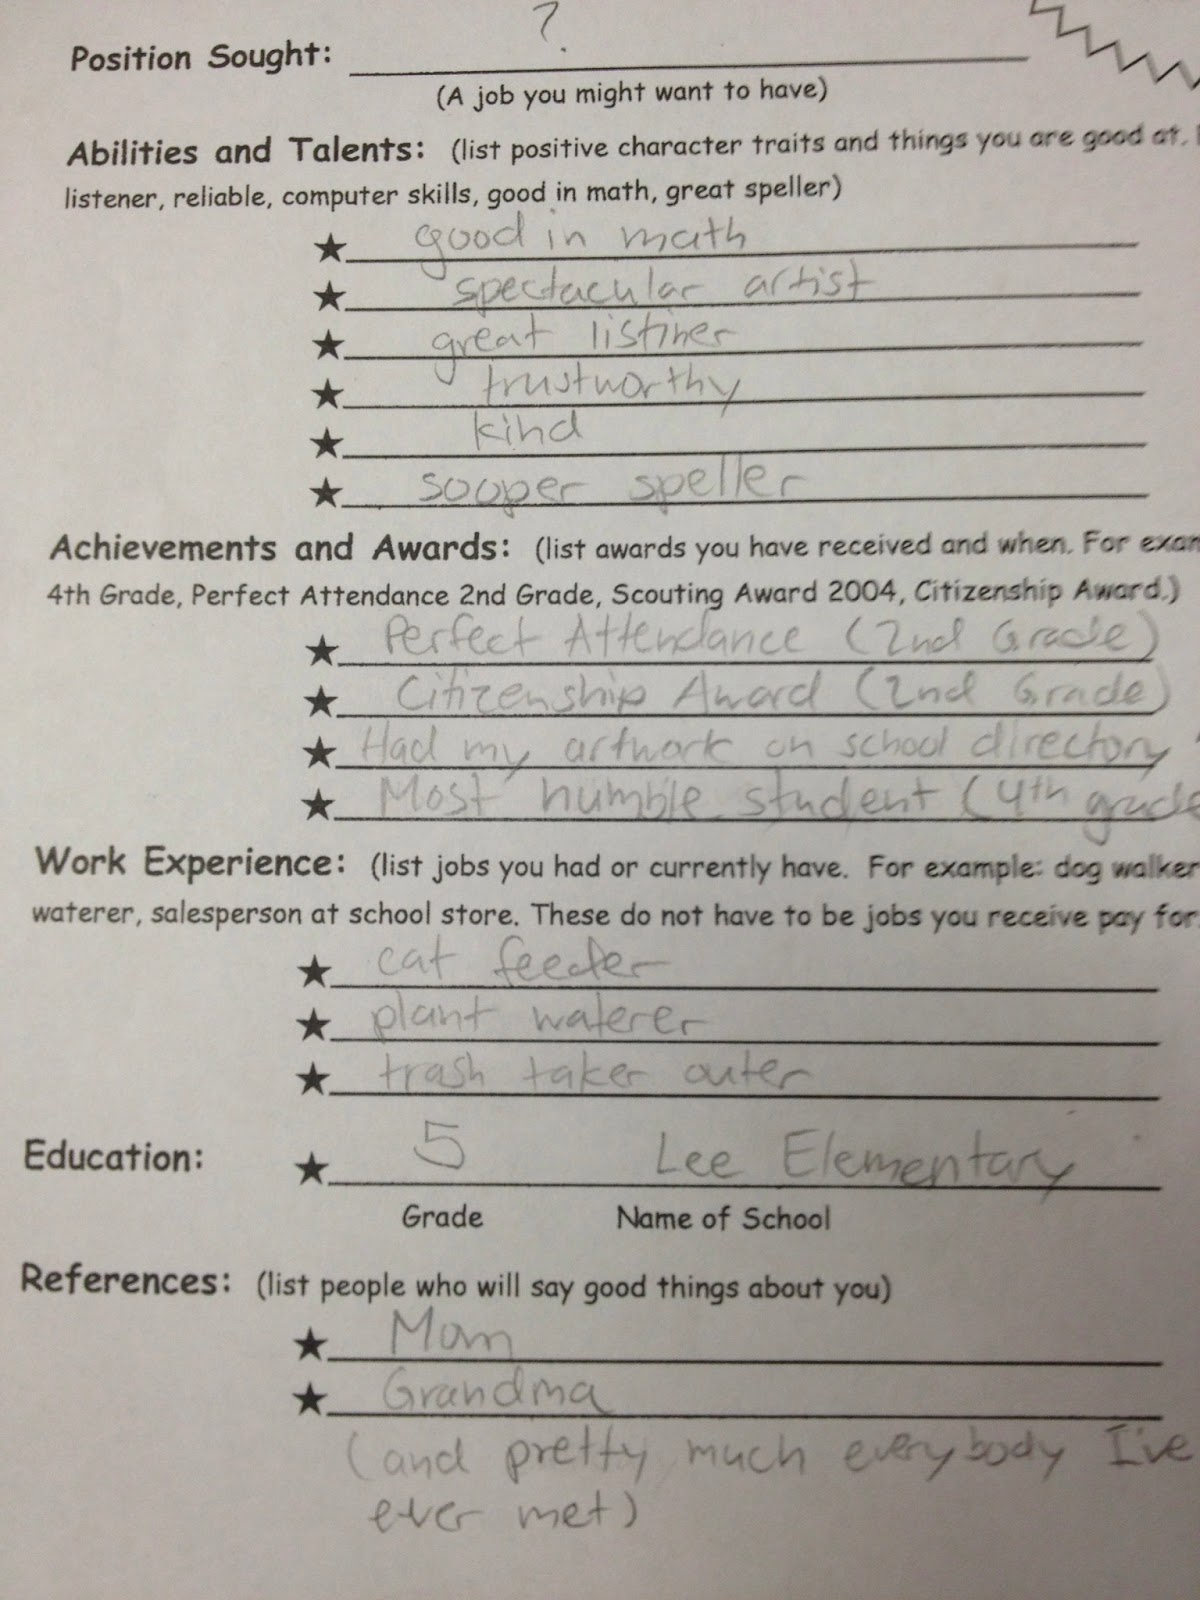 ?
Position Sought:
(A job you might want to have)
Abilities and Talents: (list positive character traits and things you are good at.
listener, reliable, computer skills, good in math, great speller)
★ good in math
★ spectacular artist
★ great listiner
★ trustworthy
★ kind
★ sooper speller
Achievements and Awards: (list awards you have received and when. For exam
4th Grade, Perfect Attendance 2nd Grade, Scouting Award 2004, Citizenship Award.)
★ Perfect Attendance (2nd Grade)
★ Citizenship Award (2nd Grade)
★ Had my artwork on school directory
★ Most humble student (4th grade
Work Experience: (list jobs you had or currently have. For example: dog walker
waterer, salesperson at school store. These do not have to be jobs you receive pay for.
★ cat feeder
★ plant waterer
★ trash taker outer
Education: ★ 5 Lee Elementary
Grade Name of School
References: (list people who will say good things about you)
★ Mom
★ Grandma
(and pretty much everybody I've
ever met)